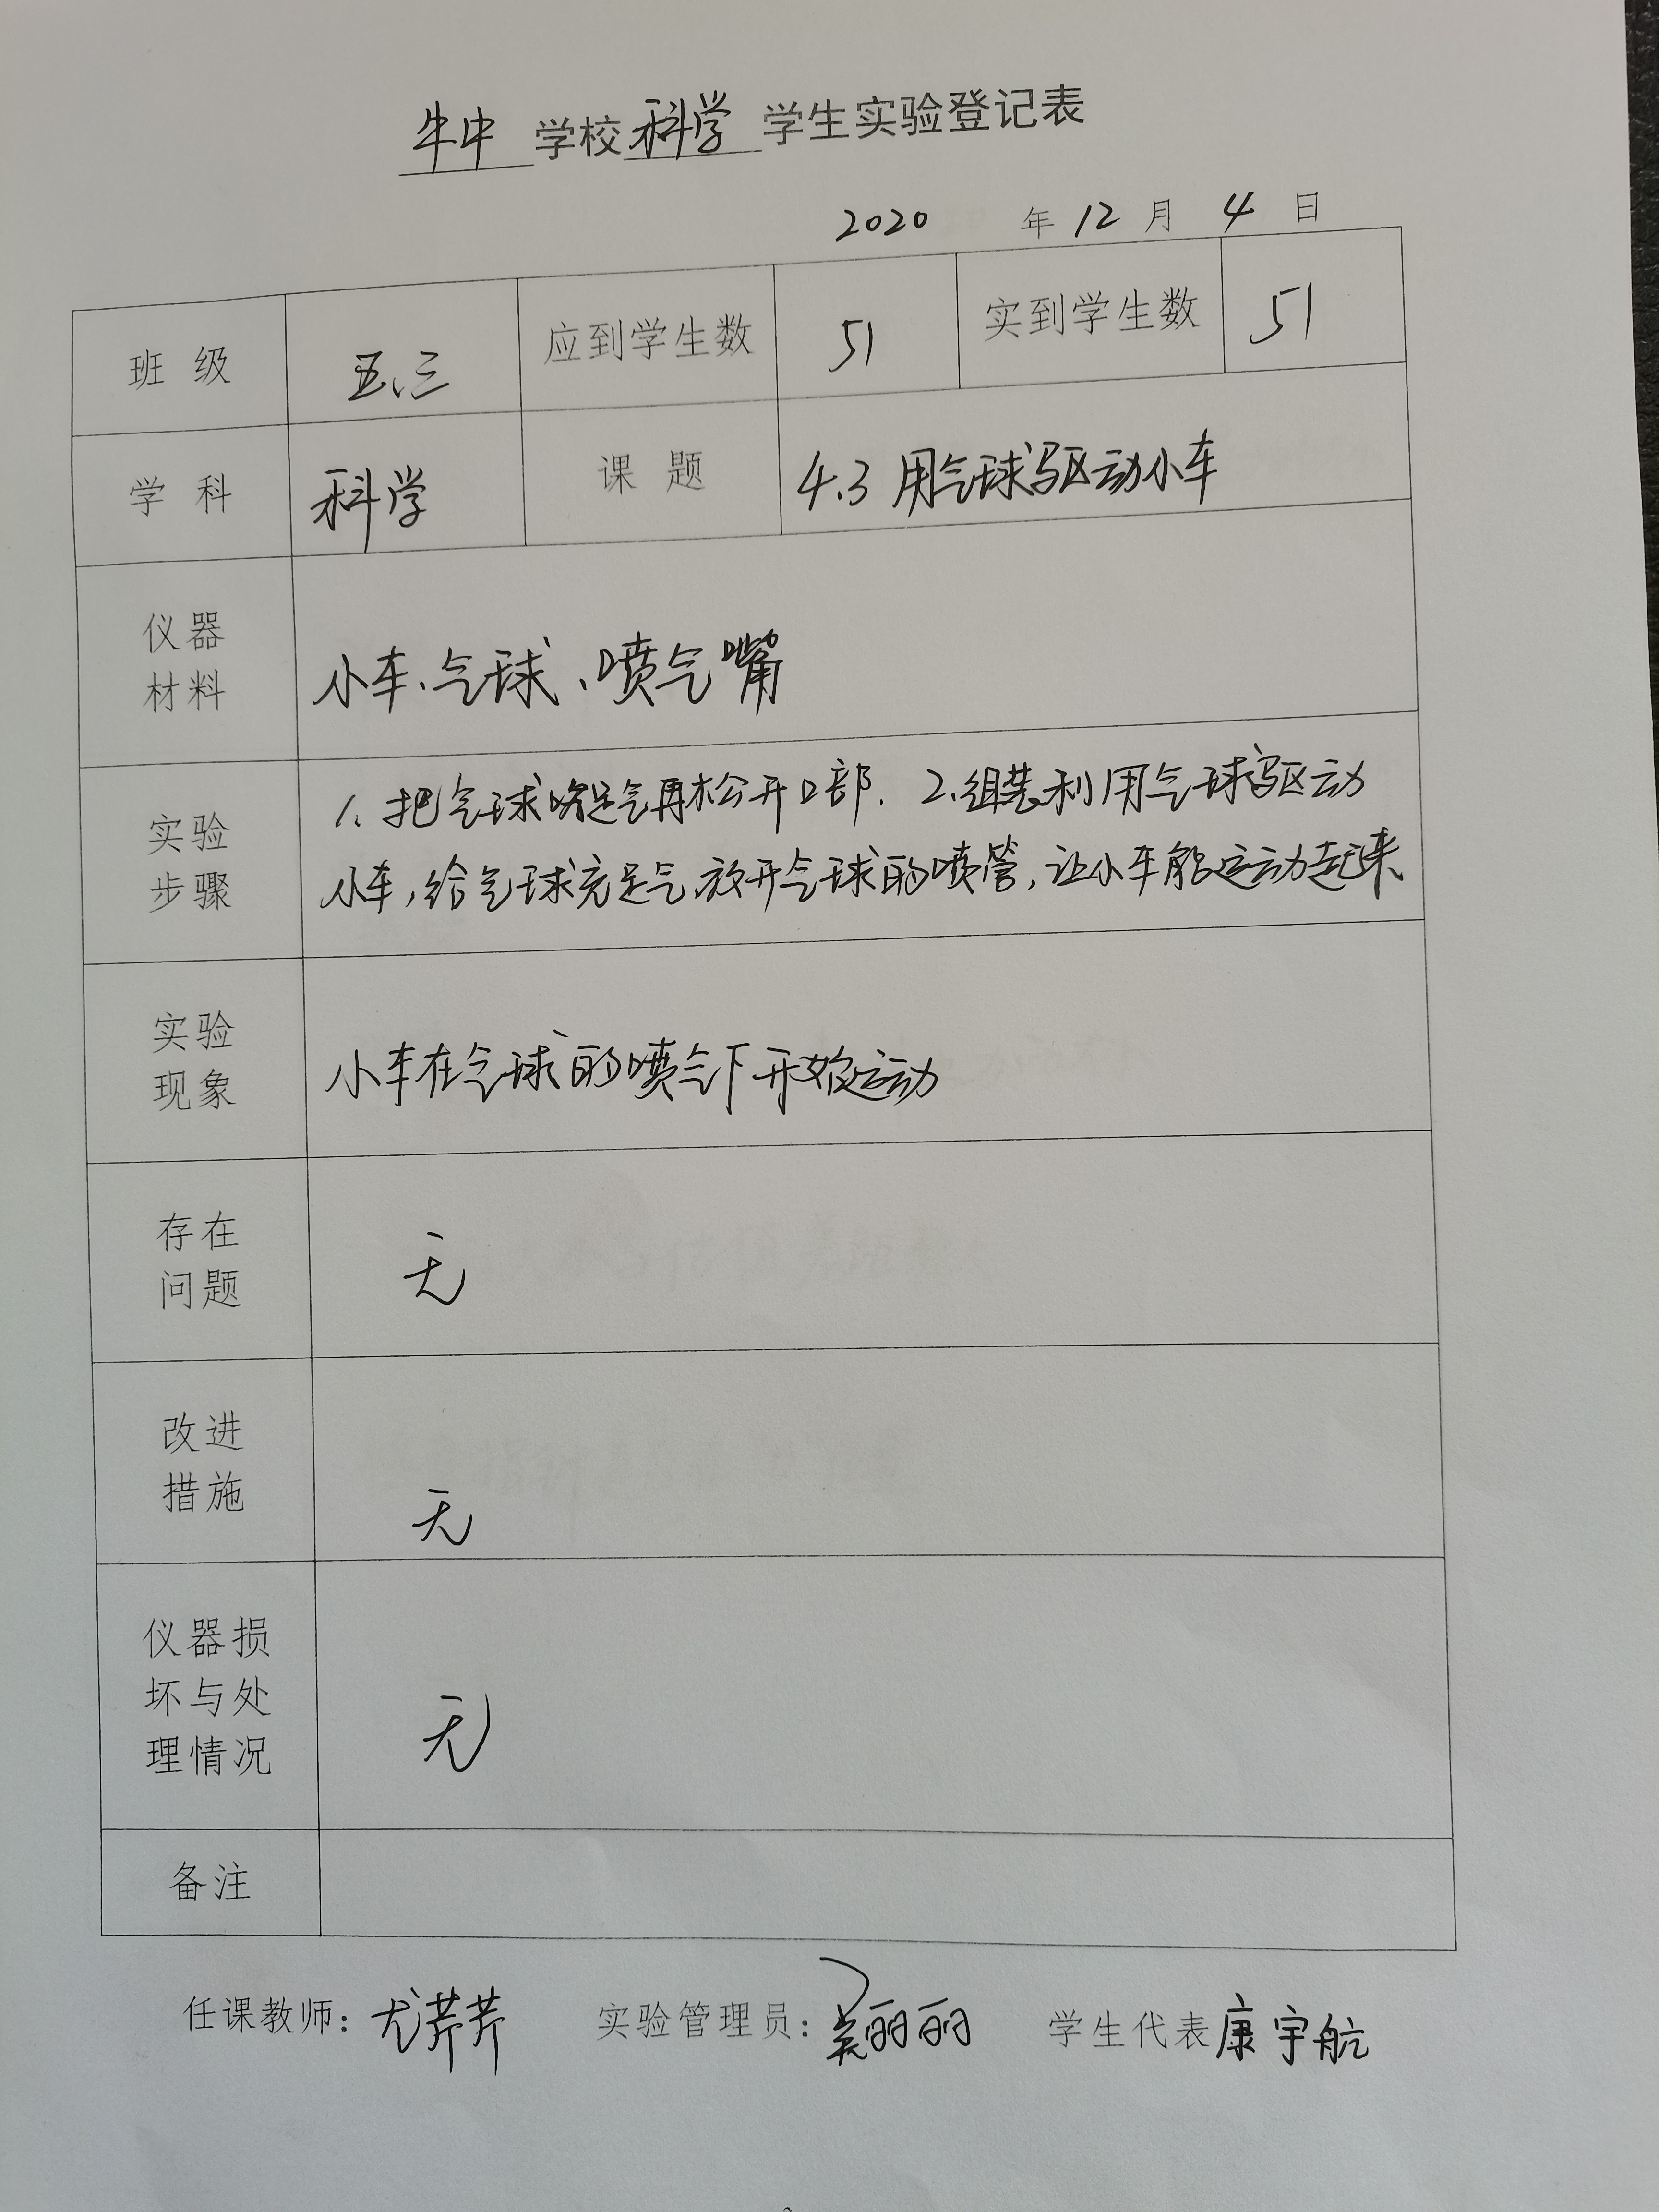 牛中学校科学学生实验登记表
2020年12月4日
班级 五、三 应到学生数 51 实到学生数 51
学科 科学 课题 4.3 用气球驱动小车
仪器
材料
小车、气球、喷气嘴
实验
步骤
1、把气球吹足气再松开口部. 2、组装利用气球驱动
小车,给气球充足气,放开气球的喷管,让小车能运动起来
实验
现象
小车在气球的喷气下开始运动
存在
问题
无
改进
措施
无
仪器损
坏与处
理情况
无
备注
任课教师:尤芹芹 实验管理员:吴丽丽 学生代表康宇航